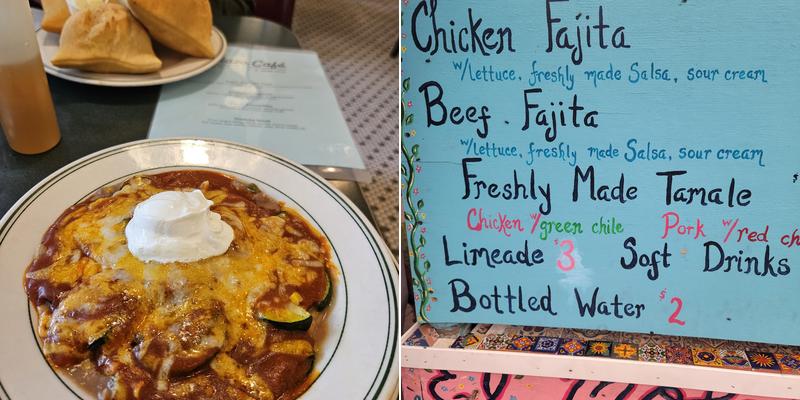 Café
Chicken Fajita
w/lettuce, freshly made Salsa, sour cream
Beef. Fajita
w/lettuce, freshly made Salsa, sour cream
Freshly Made Tamale
Chicken w/green chile Pork w/red ch
Limeade $3 Soft Drinks
Bottled Water $2